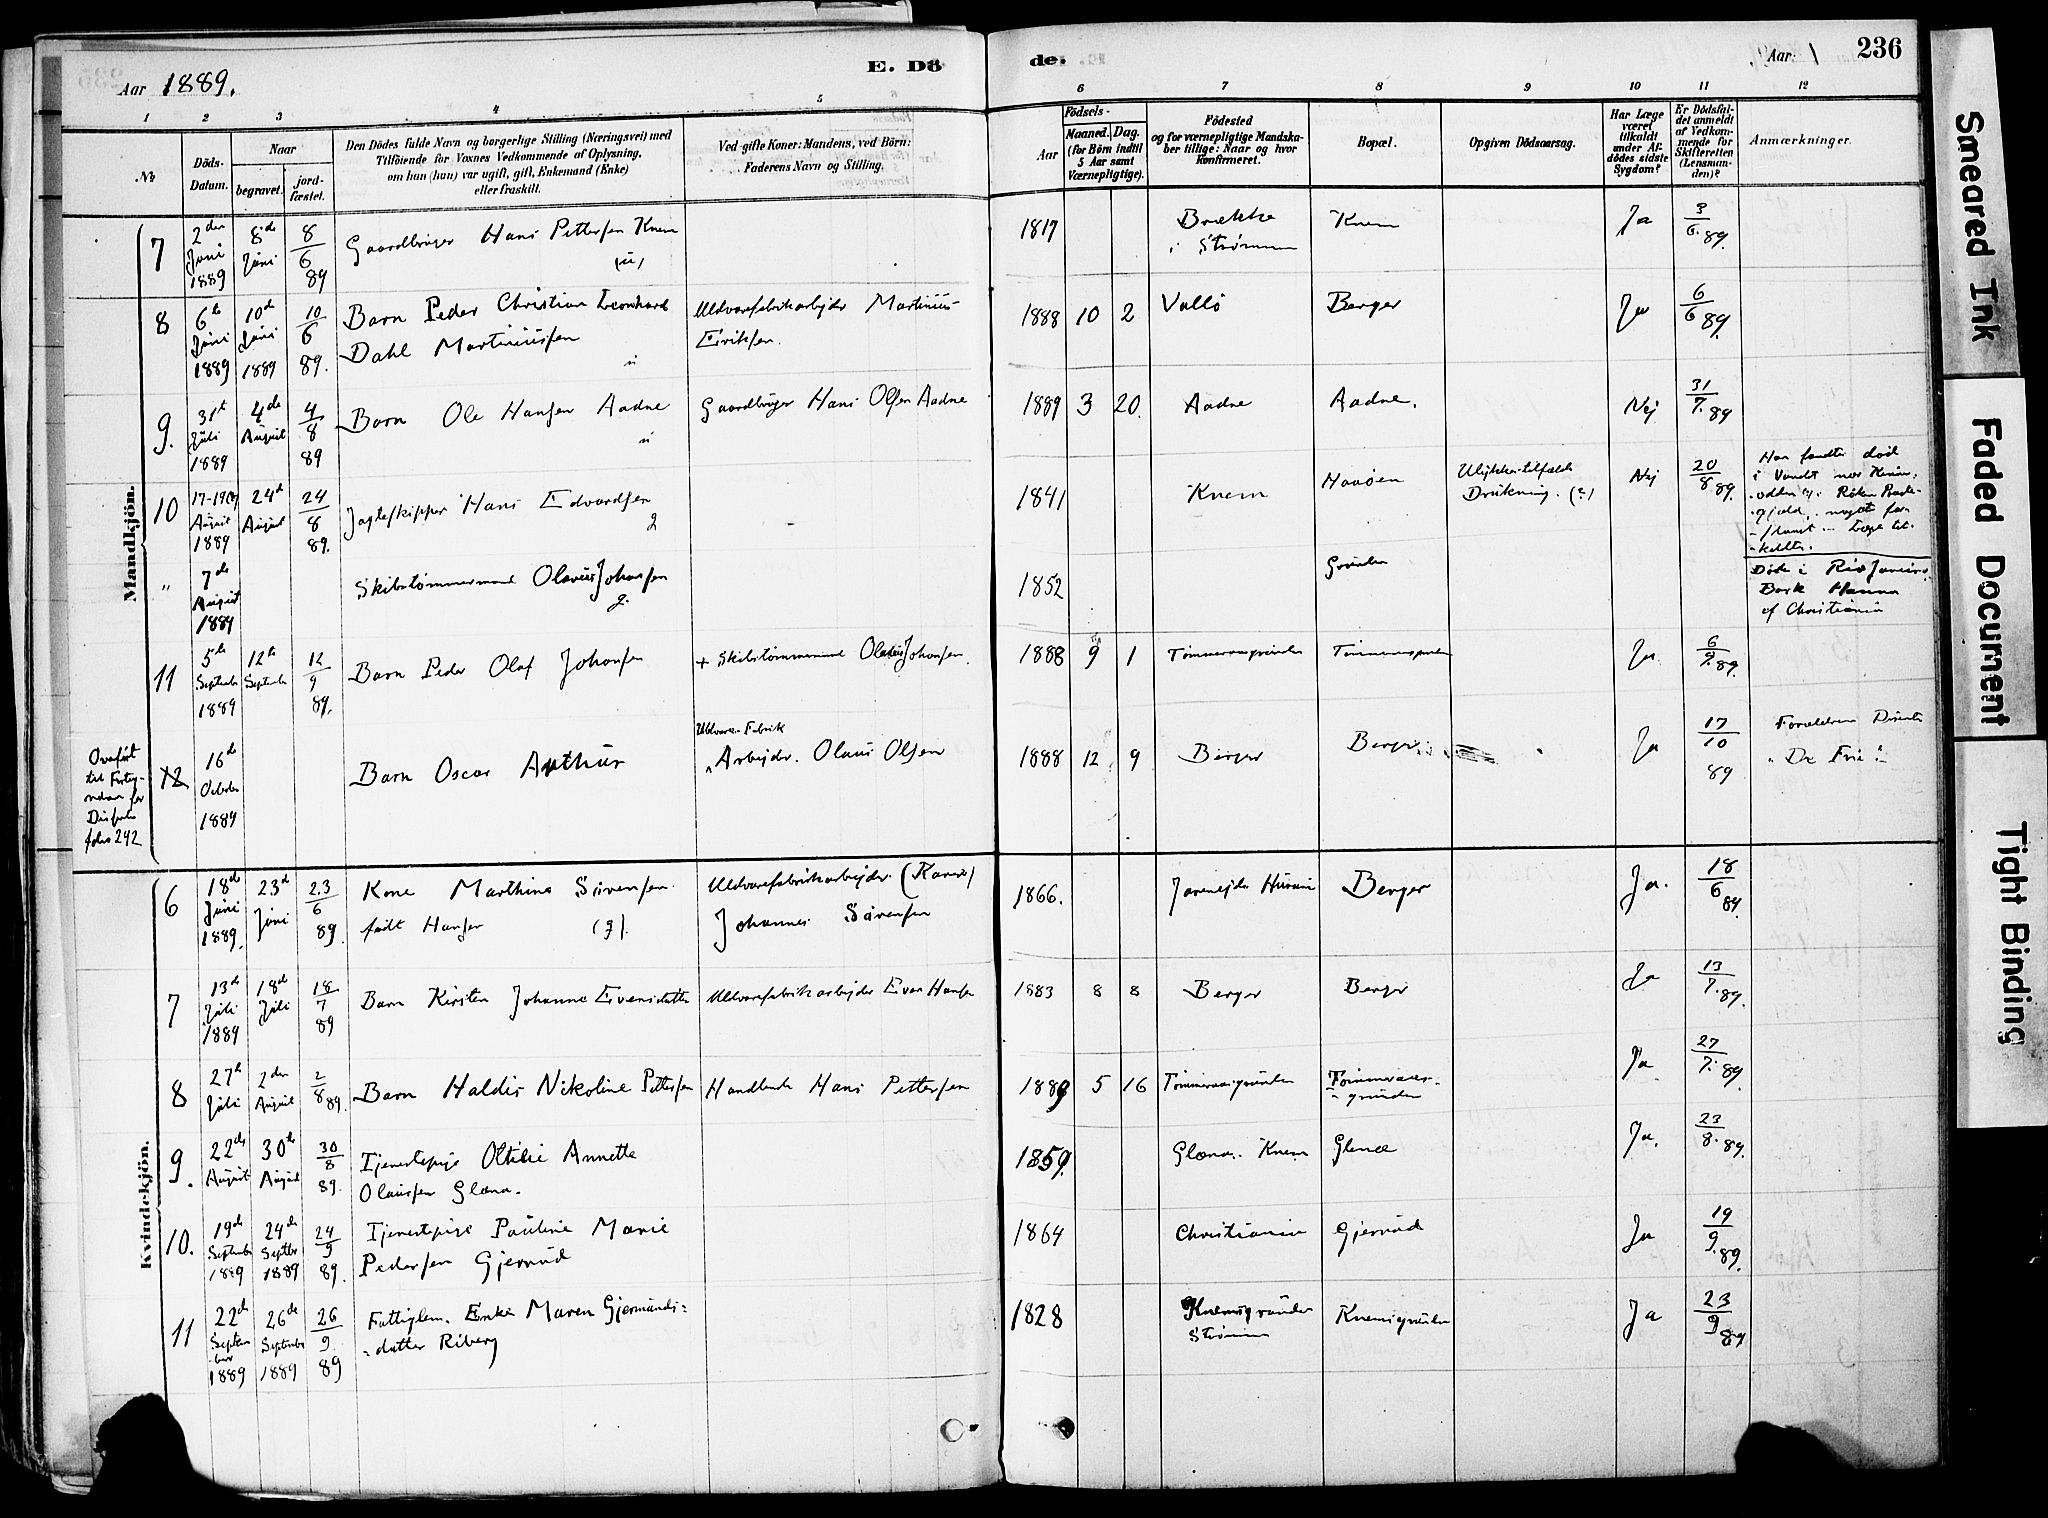 Aar 1889.
E. Dö
de.
Aar
236
1 2 3 4 5 6 7 8 9 10 11 12
No
Döds-
Datum.
Naar
begravet.
jord-
fæstet.
Den Dödes fulde Navn og borgerlige Stilling (Næringsvei) med
Tilföiende for Voxnes Vedkommende af Oplysning,
om han (hun) var ugift, gift, Enkemand (Enke)
eller fraskilt.
Ved gifte Koner: Mandens, ved Börn:
Faderens Navn og Stilling.
Födsels-
Aar
Maaned. Dag.
(for Börn indtil
5 Aar samt
Værnepligtige).
Födested
og for værnepligtige Mandska-
ber tillige: Naar og hvor
Konfirmeret.
Bopæl.
Opgiven Dödsaarsag.
Har Læge
været
tilkaldt
under Af-
dödes sidste
Sygdom?
Er Dödsfal-
det anmeldt
af Vedkom-
mende for
Skifteretten
(Lensman-
den)?
Anmærkninger.
Mandkjön.
7 2den Juni 1889 8de Juni 8/6 89 Gaardbruger Hans Pettersen Knem 1817 Brække i Strømm Knem Ja 3/6 89.
8 6te Juni 1889 10de Juni 1889 10/6 89. Barn Peder Christian Leonhard
Dahl Martiniussen Uldvarefabrikarbejder Martinius
Eriksen. 1888 10 2 Vallø Berger Ja 6/6 89.
9. 31te Juli 1889 4de August 4/8 89 Barn Ole Hansen Aadne Gaardbruger Hans Olsen Aadne 1889 3 20. Aadne Aadne. Nej 31/7. 89
10 17-19 August 1889 24de August 24/8 89. Jagtskipper Hans Edvardsen
g 1841 Knem Haaøen Ulykkestilfælde
Drukning. (?) Nej 20/8 89.
Han fandtes død
i Vandt
Røken Præste-
gjæld
" 7de August 1889 Skibstømmermand Olavus Johansen
g. 1852 Grunden
Døde i Rio Janeiro.
Bark Hanna
af Christiania
11 5te September 1889 12te September 12/9 89. Barn Peder Olaf Johansen + Skibstømmermand Olavus Johansen. 1888 9 1 Tømmeraasgrunden Ja 6/9. 89.
Overført
til Forteg-
nelsen for
folio 242
12 16de October 1889 Barn Oscar Arthur Uldvare-Fabrik
Arbejder. Olaus Olsen 1888 12 9 Berger Berger Ja 17/10 89
Forældrene
"De Frie"
Kvindekjön.
6 18de Juni 1889. 23de Juni 23/6 89. Kone Marthine Sørensen.
født Hansen (g). Uldvarefabrikarbejder
Johannes Sørensen 1866. Berger Ja. 18/6 89.
7 13de Juli 1889 18de Juli 18/7 89 Barn Kirsten Johanne Evensdatter Uldvarefabrikarbejder Even Hansen 1883 8 8 Berger Berger Ja 13/7. 89.
8 27de Juli 2den August 2/8 89. Barn Haldis Nikoline Pettersen Handlende Hans Pettersen 1889 5 16 Tømmeraasgrunden Tømmeraas-
grunden Ja 27/7. 89
9. 22de August 30te August 30/8 89. Tjenestepige Oltilie Annette
Olaussen Glæna. 1859. Glæna. Knem Glenæ Ja. 23/8. 89.
10. 19de September 1889 24de Septbr 1889 24/9 89. Tjenestepige Pauline Marie
Pedersen Gjerud 1864 Christiania Gjerud Ja 19/9. 89.
11 22de September 1889 26de September 1889 26/9. 89 Fattiglem. Enke Maren Gjermunds-
datter Riberg 1828 Knemsgrunden
Strømm Knemsgrunden Ja 23/9 89
Smeared Ink
Faded Document
Tight Binding